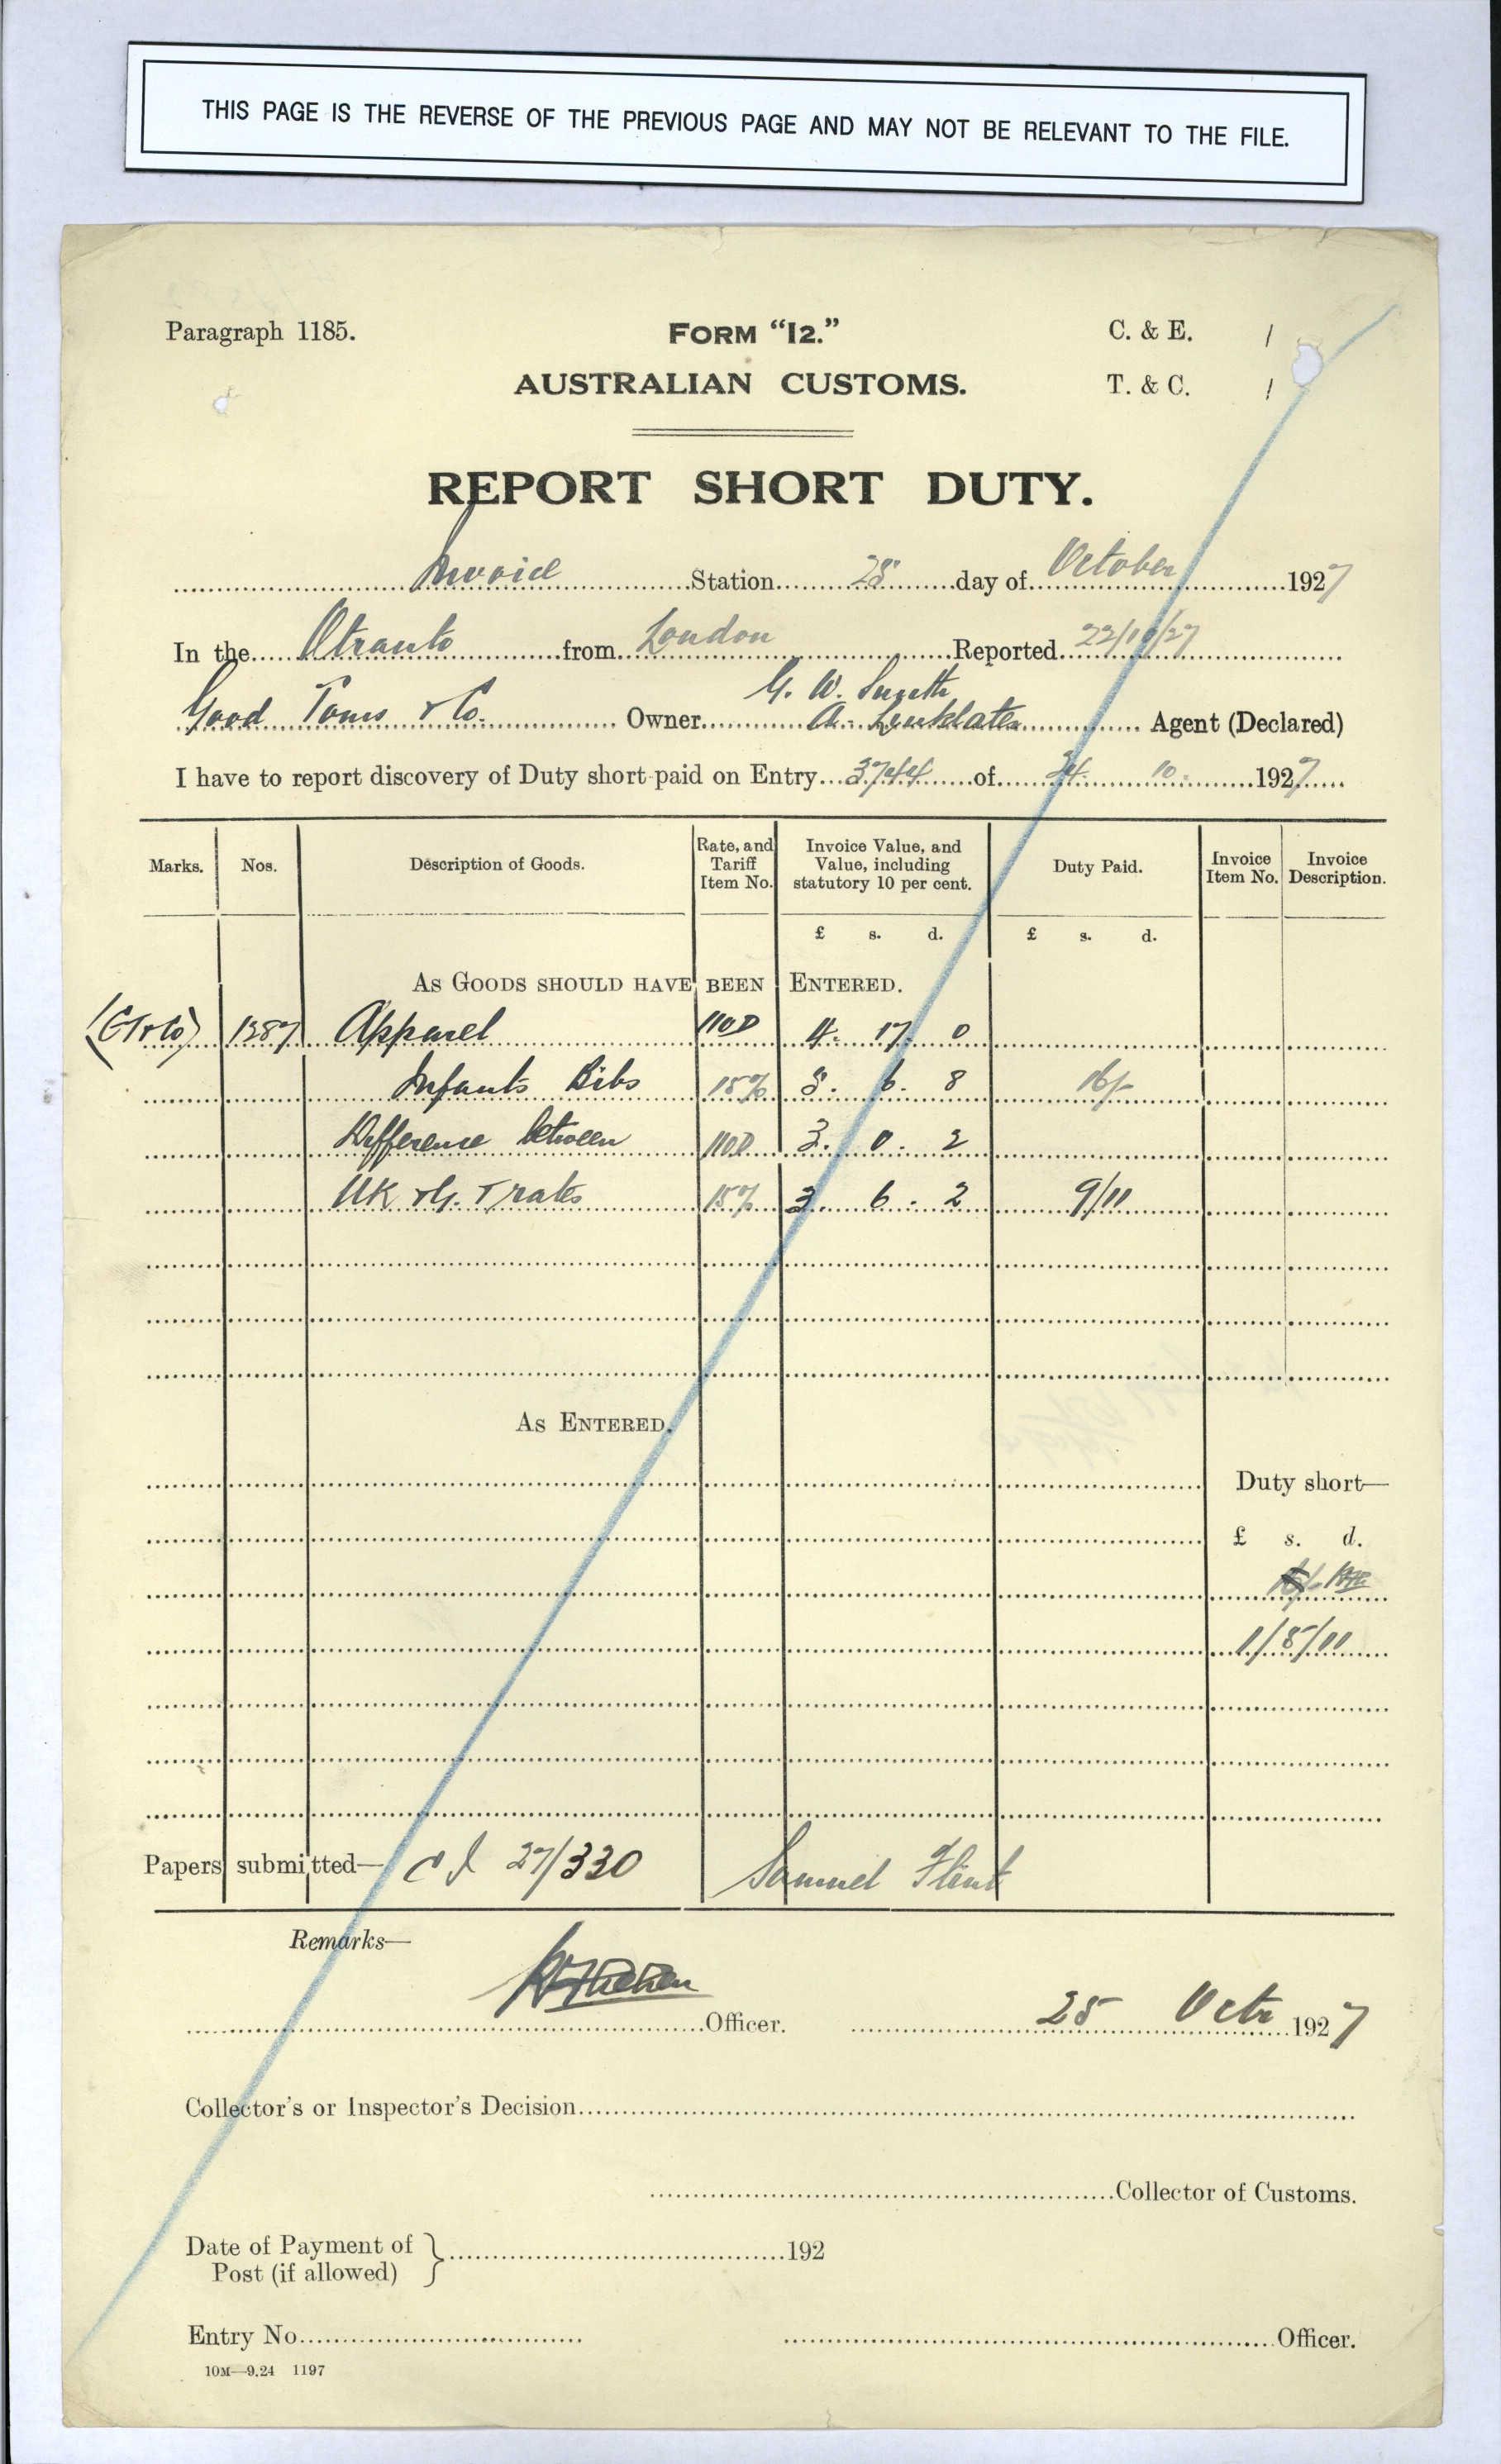 THIS PAGE IS THE REVERSE OF THE PREVIOUS PAGE AND MAY NOT BE RELEVANT TO THE FILE.
Paragraph 1185. FORM “I2.” C. & E. /
AUSTRALIAN CUSTOMS. T. & C. /
REPORT SHORT DUTY.
Invoice Station 28 day of October 1927
In the Otranto from London Reported 22/10/27
G. W. Smith
Good Toms & Co. Owner A. Agent (Declared)
I have to report discovery of Duty short paid on Entry 3744 of 24 10. 1927
Marks. Nos. Description of Goods. Rate, and Tariff Item No. Invoice Value, and Value, including statutory 10 per cent. Duty Paid. Invoice Item No. Invoice Description.
£ s. d. £ s. d.
AS GOODS SHOULD HAVE BEEN ENTERED.
(GT&Co) 1387 Apparel 110D 4. 17. 0
Infants Bibs 15% 5. 6. 8 16/-
Difference between 110D 3. 0. 2
UK & G. T rates 15% 3. 6. 2 9/11
AS ENTERED.
Duty short—
£ s. d.
1/5/11
Papers submitted— C I 27/330 Samuel Flint
Remarks—
Officer. 25 Octr 1927
Collector's or Inspector's Decision
Collector of Customs.
Date of Payment of } 192
Post (if allowed)
Entry No. Officer.
10M—9.24 1197